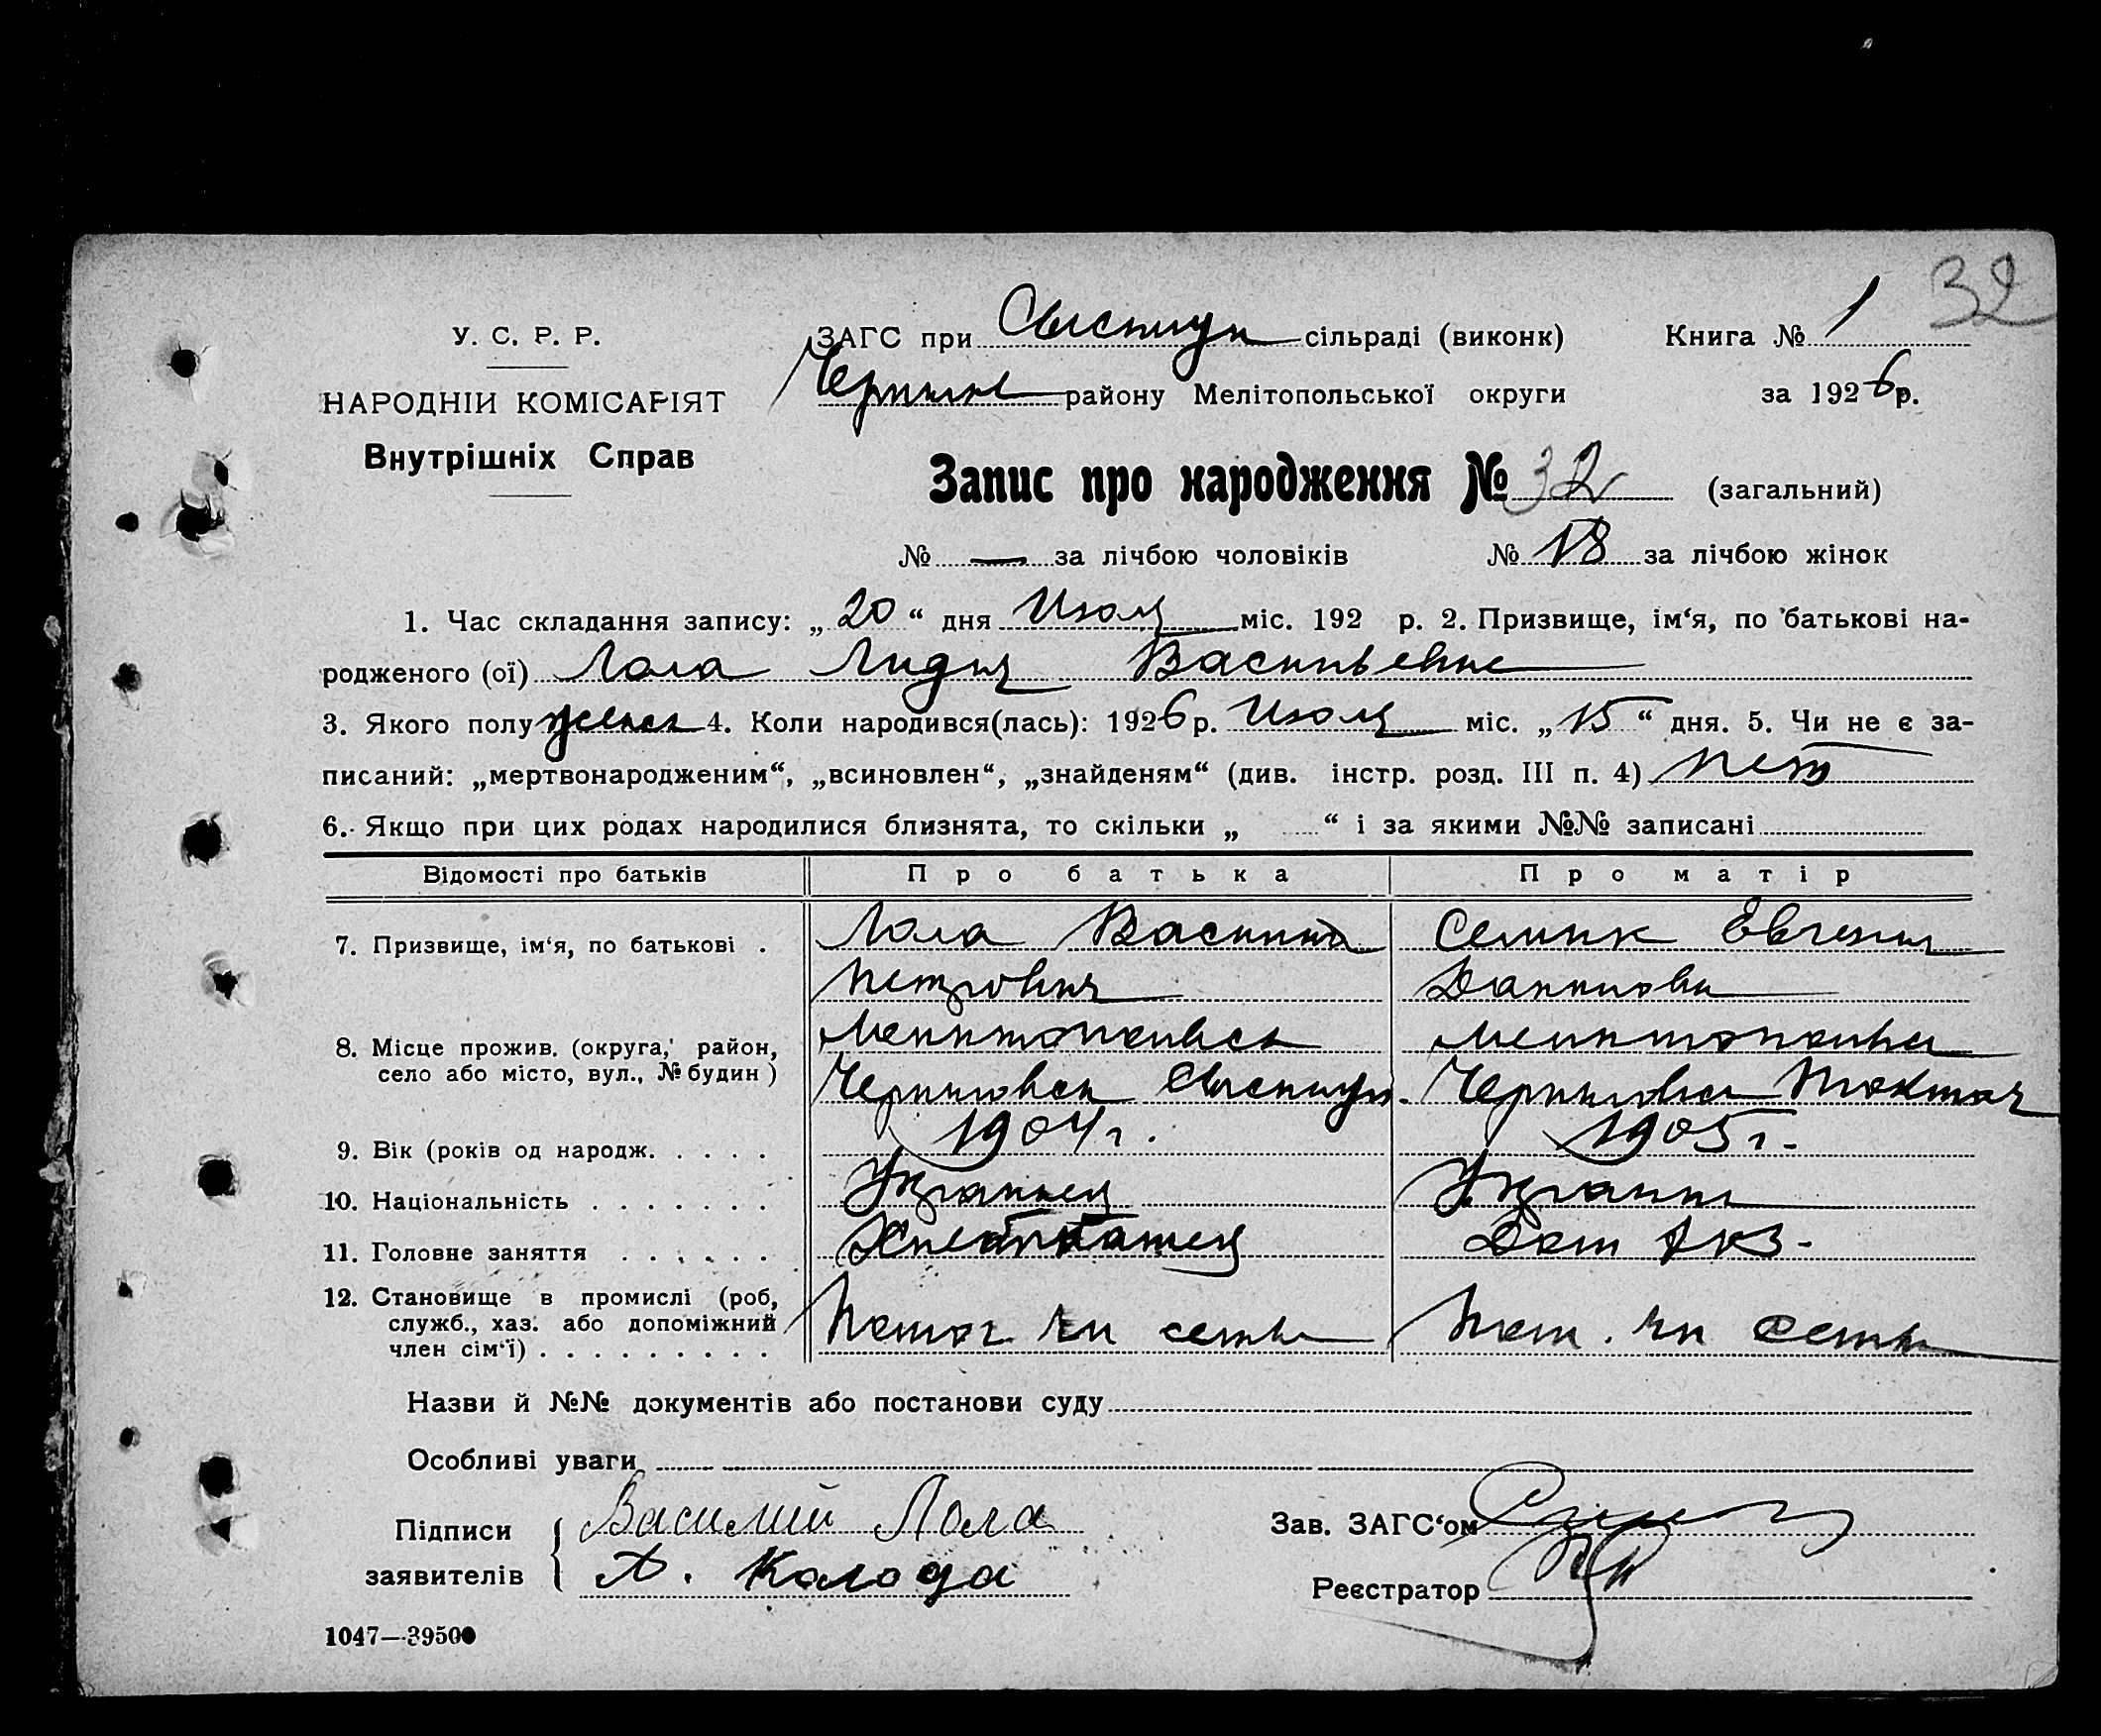 32
У. С. Р. Р.
ЗАГС при сільраді (виконк) Книга № 1
НАРОДНІЙ КОМІСАРІЯТ
району Мелітопольської округи за 1926 р.
Внутрішніх Справ
Запис про народження № 32 (загальний)
№ — за лічбою чоловіків № 18 за лічбою жінок
1. Час складання запису: „20“ дня Июля міс. 192 р. 2. Призвище, ім‘я, по батькові на-
родженого (ої) Лола Лидия Васильевна
3. Якого полу женск 4. Коли народився(лась): 1926 р. Июля міс. „15“ дня. 5. Чи не є за-
писаний: „мертвонародженим“, „всиновлен“, „знайденям“ (див. інстр. розд. III п. 4) Нет
6. Якщо при цих родах народилися близнята, то скільки „ “ і за якими №№ записані
Відомості про батьків Про батька Про матір
7. Призвище, ім‘я, по батькові . Лола Василий Селик Евгения
Петрович Даниловн
8. Місце прожив. (округа, район, Мелитопольск Мелитопольск
село або місто, вул., № будин) Черниговск Черниговск Токмач
9. Вік (років од народж. . . . . 1904 г. 1905 г.
10. Національність . . . . . . . Украинец Украинк
11. Головне заняття . . . . . . Хлебопашец Дом
12. Становище в промислі (роб, Помог. чл семьи Пом. чл семьи
служб., хаз. або допоміжний
член сім‘ї) . . . . . . . . .
Назви й №№ документів або постанови суду
Особливі уваги
Підписи Василий Лола Зав. ЗАГС‘ом
заявителів Колода Реєстратор
1047—39500